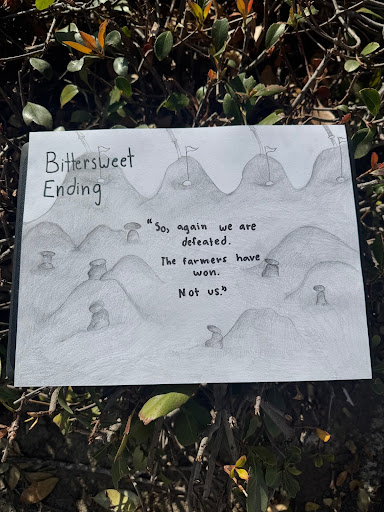 Bittersweet
Ending
"So, again we are
defeated.
The farmers have
won.
Not us."